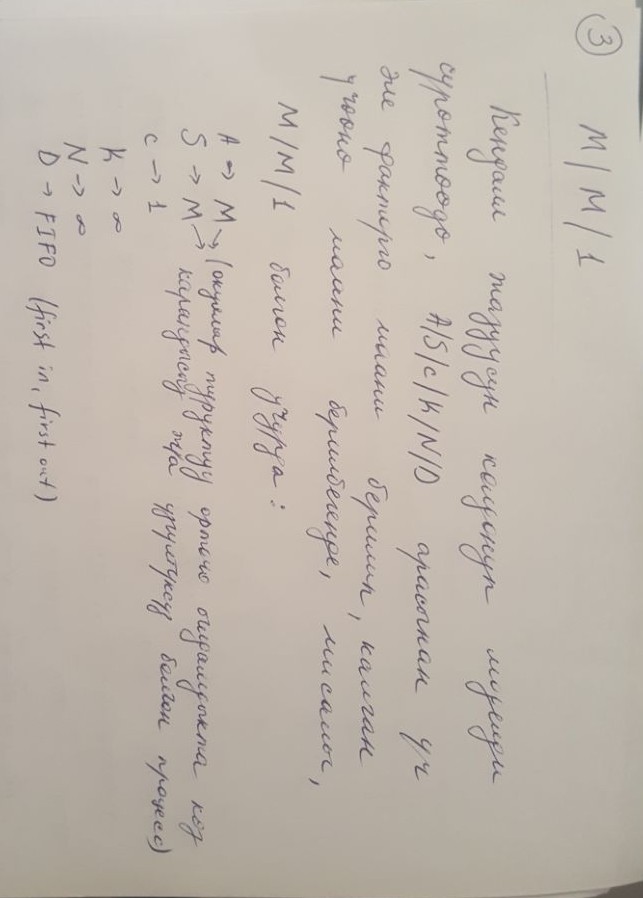 3
M/M/1
Кендалл жазуусун колдонуп моделди
суроттоодо, A/S/c/K/N/D арасынан уч
эле факторго маани берилип, калган
учооно маани берилбегенде, мисалы,
M/M/1 болгон учурда:
A → M (окуялар туруктуу орточо ылдамдыкта коз
S → M карандысыз жа узгултуксуз болгон процесс)
c → 1
K → ∞
N → ∞
D → FIFO (first in, first out)